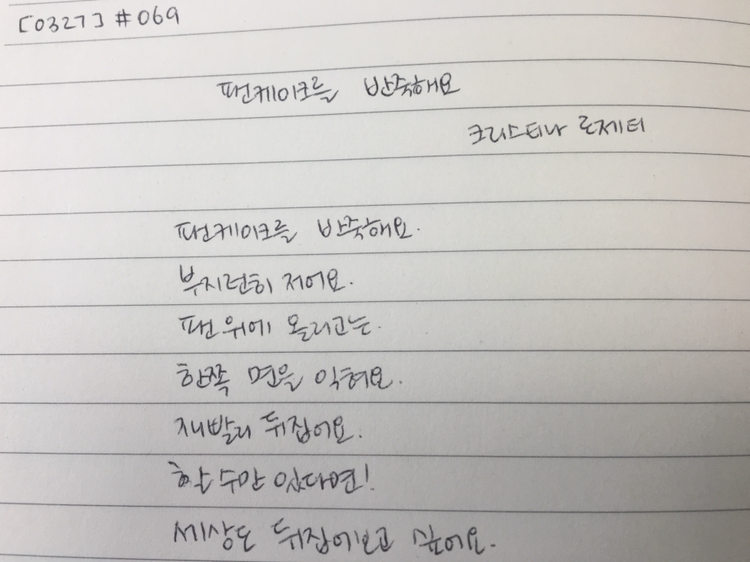 [0327] #069
팬케이크를 반죽해요
크리스티나 로제티
팬케이크를 반죽해요.
부지런히 저어요.
팬 위에 올리고는.
한쪽 면을 익혀요.
재빨리 뒤집어요.
할 수만 있다면!
세상도 뒤집어보고 싶어요.